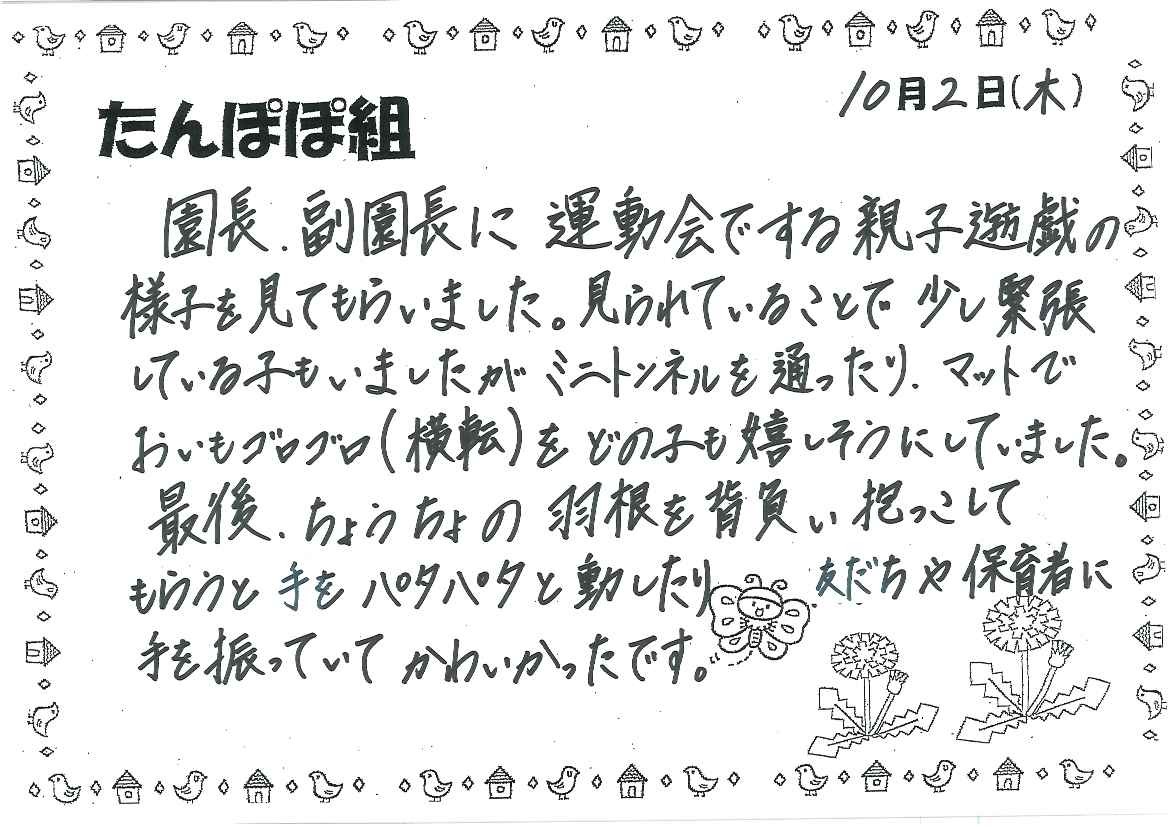 10月2日(木)
たんぽぽ組
園長、副園長に運動会でする親子遊戯の
様子を見てもらいました。見られていることで少し緊張
している子もいましたがミニトンネルを通ったり、マットで
おいもゴロゴロ(横転)をどの子も嬉しそうにしていました。
最後、ちょうちょの羽根を背負い抱っこして
もらうと手をパタパタと動したり友だちや保育者に
手を振っていてかわいかったです。